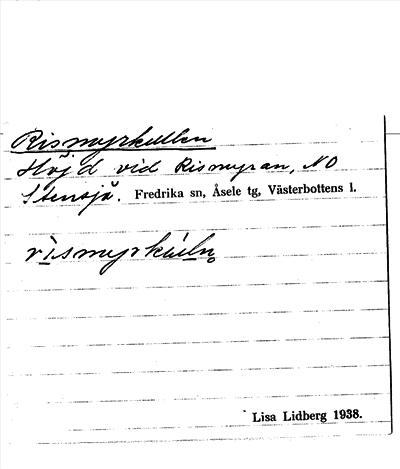 Rismyrkullen
Höjd vid Rismyran, NO
Stensjö. Fredrika sn, Åsele tg, Västerbottens l.
rismyrkúln̥
Lisa Lidberg 1938.